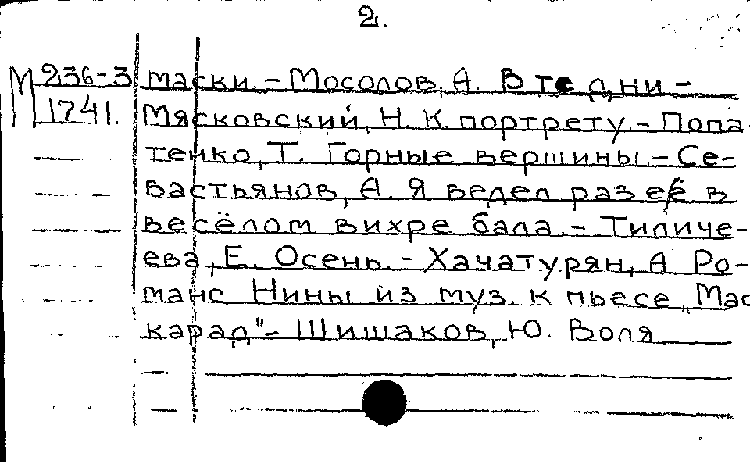 2.
М 236-3 маски. - Мосолов, А. В те дни -
1741. Мясковский, Н. К портрету - Попа
тенко, Т. Горные вершины - Се-
вастьянов, А. Я ведел раз её в
весёлом вихре бала. - Тиличе-
ева, Е. Осень. - Хачатурян, А Ро-
манс Нины из муз. к пьесе „Мас
карад" - Шишаков, Ю. Воля